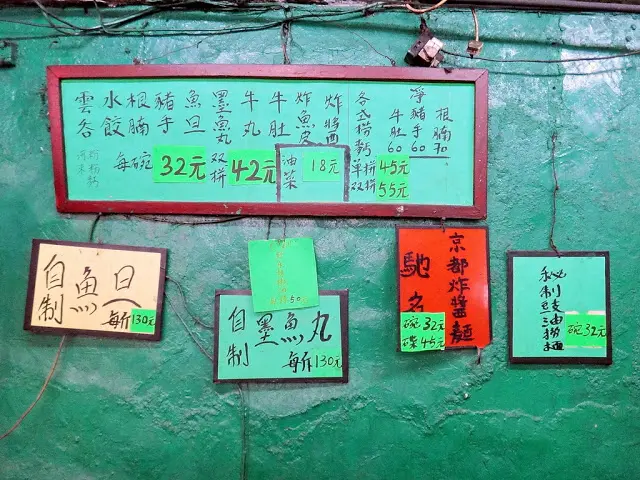 雲吞
水餃
根腩
豬手
魚旦
墨魚丸
牛丸
牛肚
炸魚皮
炸醬
各式撈麵
淨
牛肚60
豬手60
根腩70
每碗32元
双拼42元
油菜18元
单拼45元
双拼55元
自制
魚旦
每斤130元
50元
自制
墨魚丸
每斤130元
京都炸醬麵
馳名
碗32元
碟45元
秘制豉油撈麵
碗32元